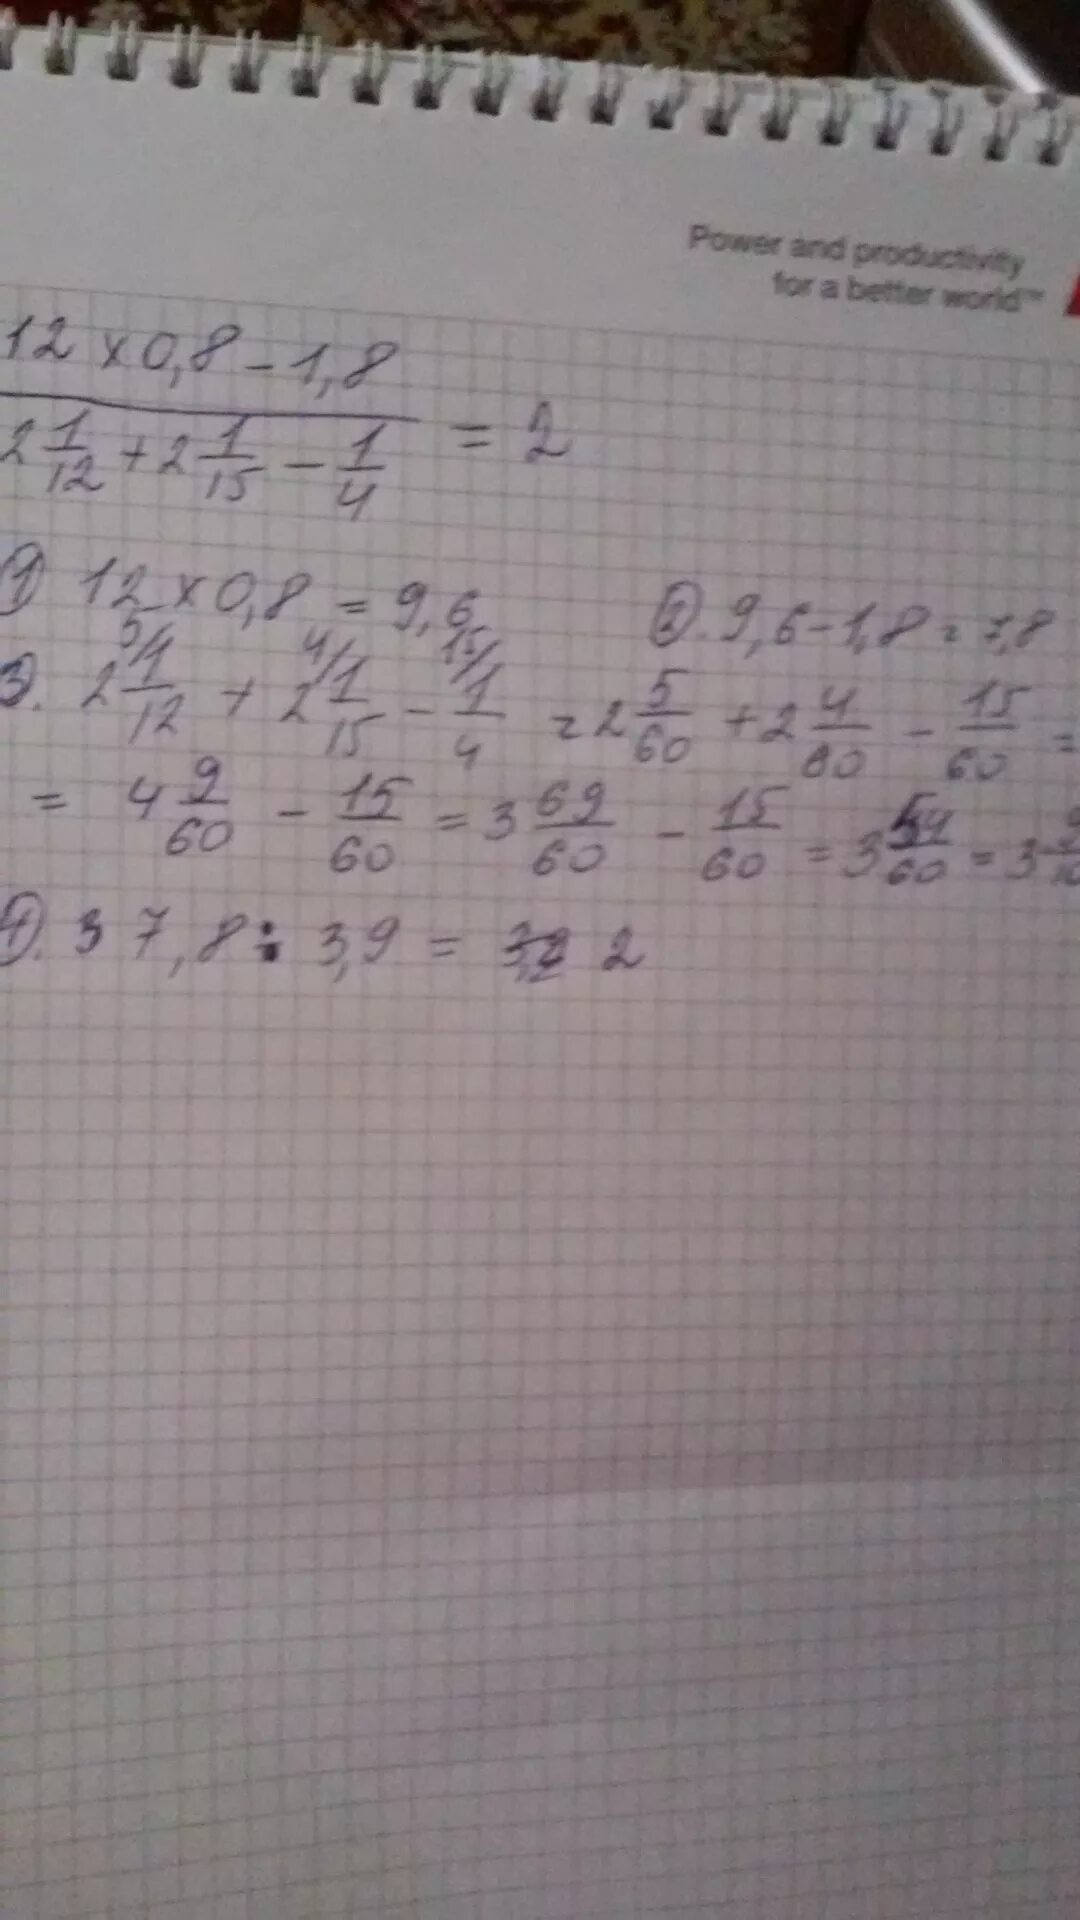 Power and productivity
for a better world™
12 × 0,8 - 1,8
2 1/12 + 2 1/15 - 1/4 = 2
① 12 × 0,8 = 9,6 ②. 9,6 - 1,8 = 7,8
5/ 4/ 15/
3. 2 1/12 + 2 1/15 - 1/4 = 2 5/60 + 2 4/60 - 15/60 =
= 4 9/60 - 15/60 = 3 69/60 - 15/60 = 3 54/60 = 3 9/10
④. 7,8 : 3,9 = 2